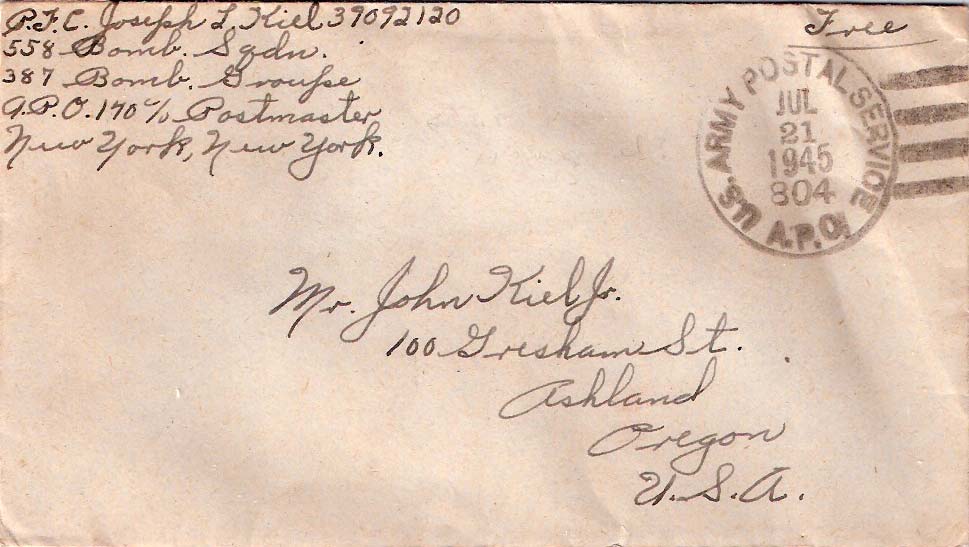 P.F.C. Joseph L. Kiel 39092120
558 Bomb. Sqdn.
387 Bomb. Groupe
A.P.O. 170 c/o Postmaster
New York, New York.
Free
U.S. ARMY POSTAL SERVICE
JUL
21
1945
804
A.P.O.
Mr. John Kiel Jr.
100 Gresham St.
Ashland
Oregon
U.S.A.